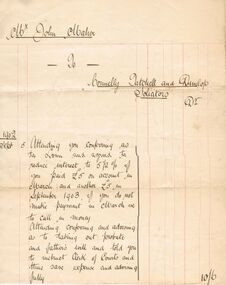 Mr John Maher
— To —
Connelly Tatchell and Dunlop
Solicitors
Dr
1903
Sept 5 Attending you conferring as
to loan and agreed to
reduce interest to 5½% if
you paid £5 on account in
March and another £5 in
September 1903, if you do not
make payment in March we
to call in money
Attending conferring and advising
as to taking out probate
and father's will and told you
to instruct Clerk of Courts and
thus save expense and advising
fully
10/6